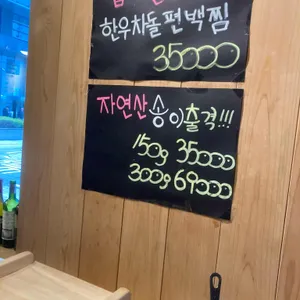 한우차돌편백찜
35000
자연산송이출격!!!
150g 35000
300g 69000